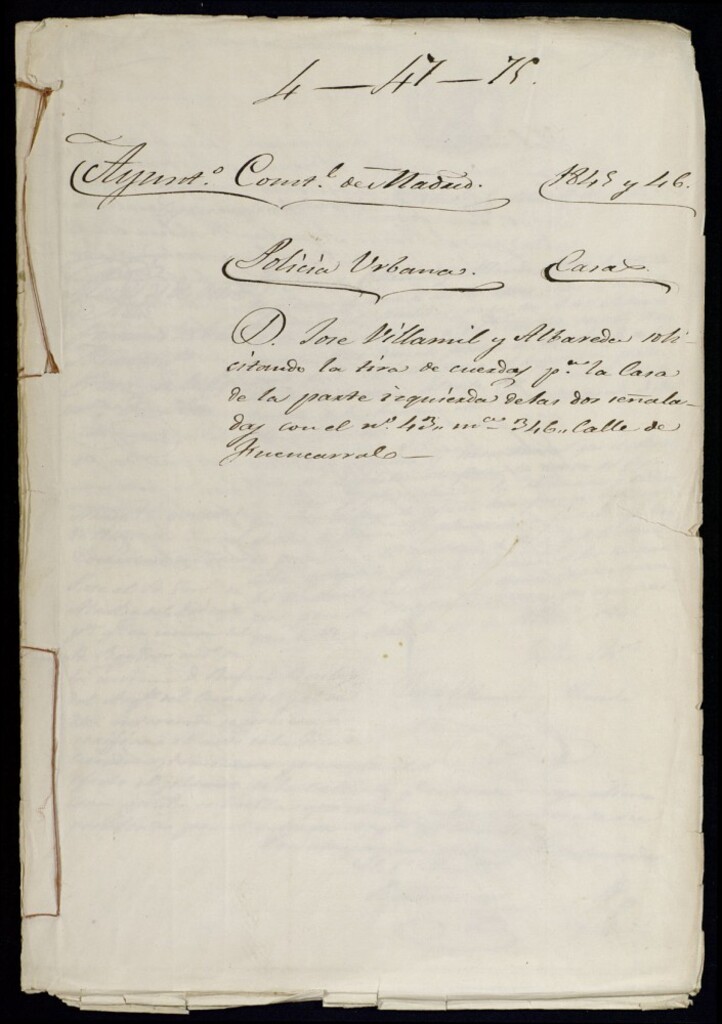 4 — 47 — 75.
Ayunt.o Const.l de Madrid. 1845 y 46.
Policia Urbana. Casas
D. Jose Villamil y Albareda soli-
citando la tira de cuerdas p.a la Casa
de la parte izquierda de las dos señala-
das con el n.o 43,, m.a 346,, Calle de
Fuencarral —